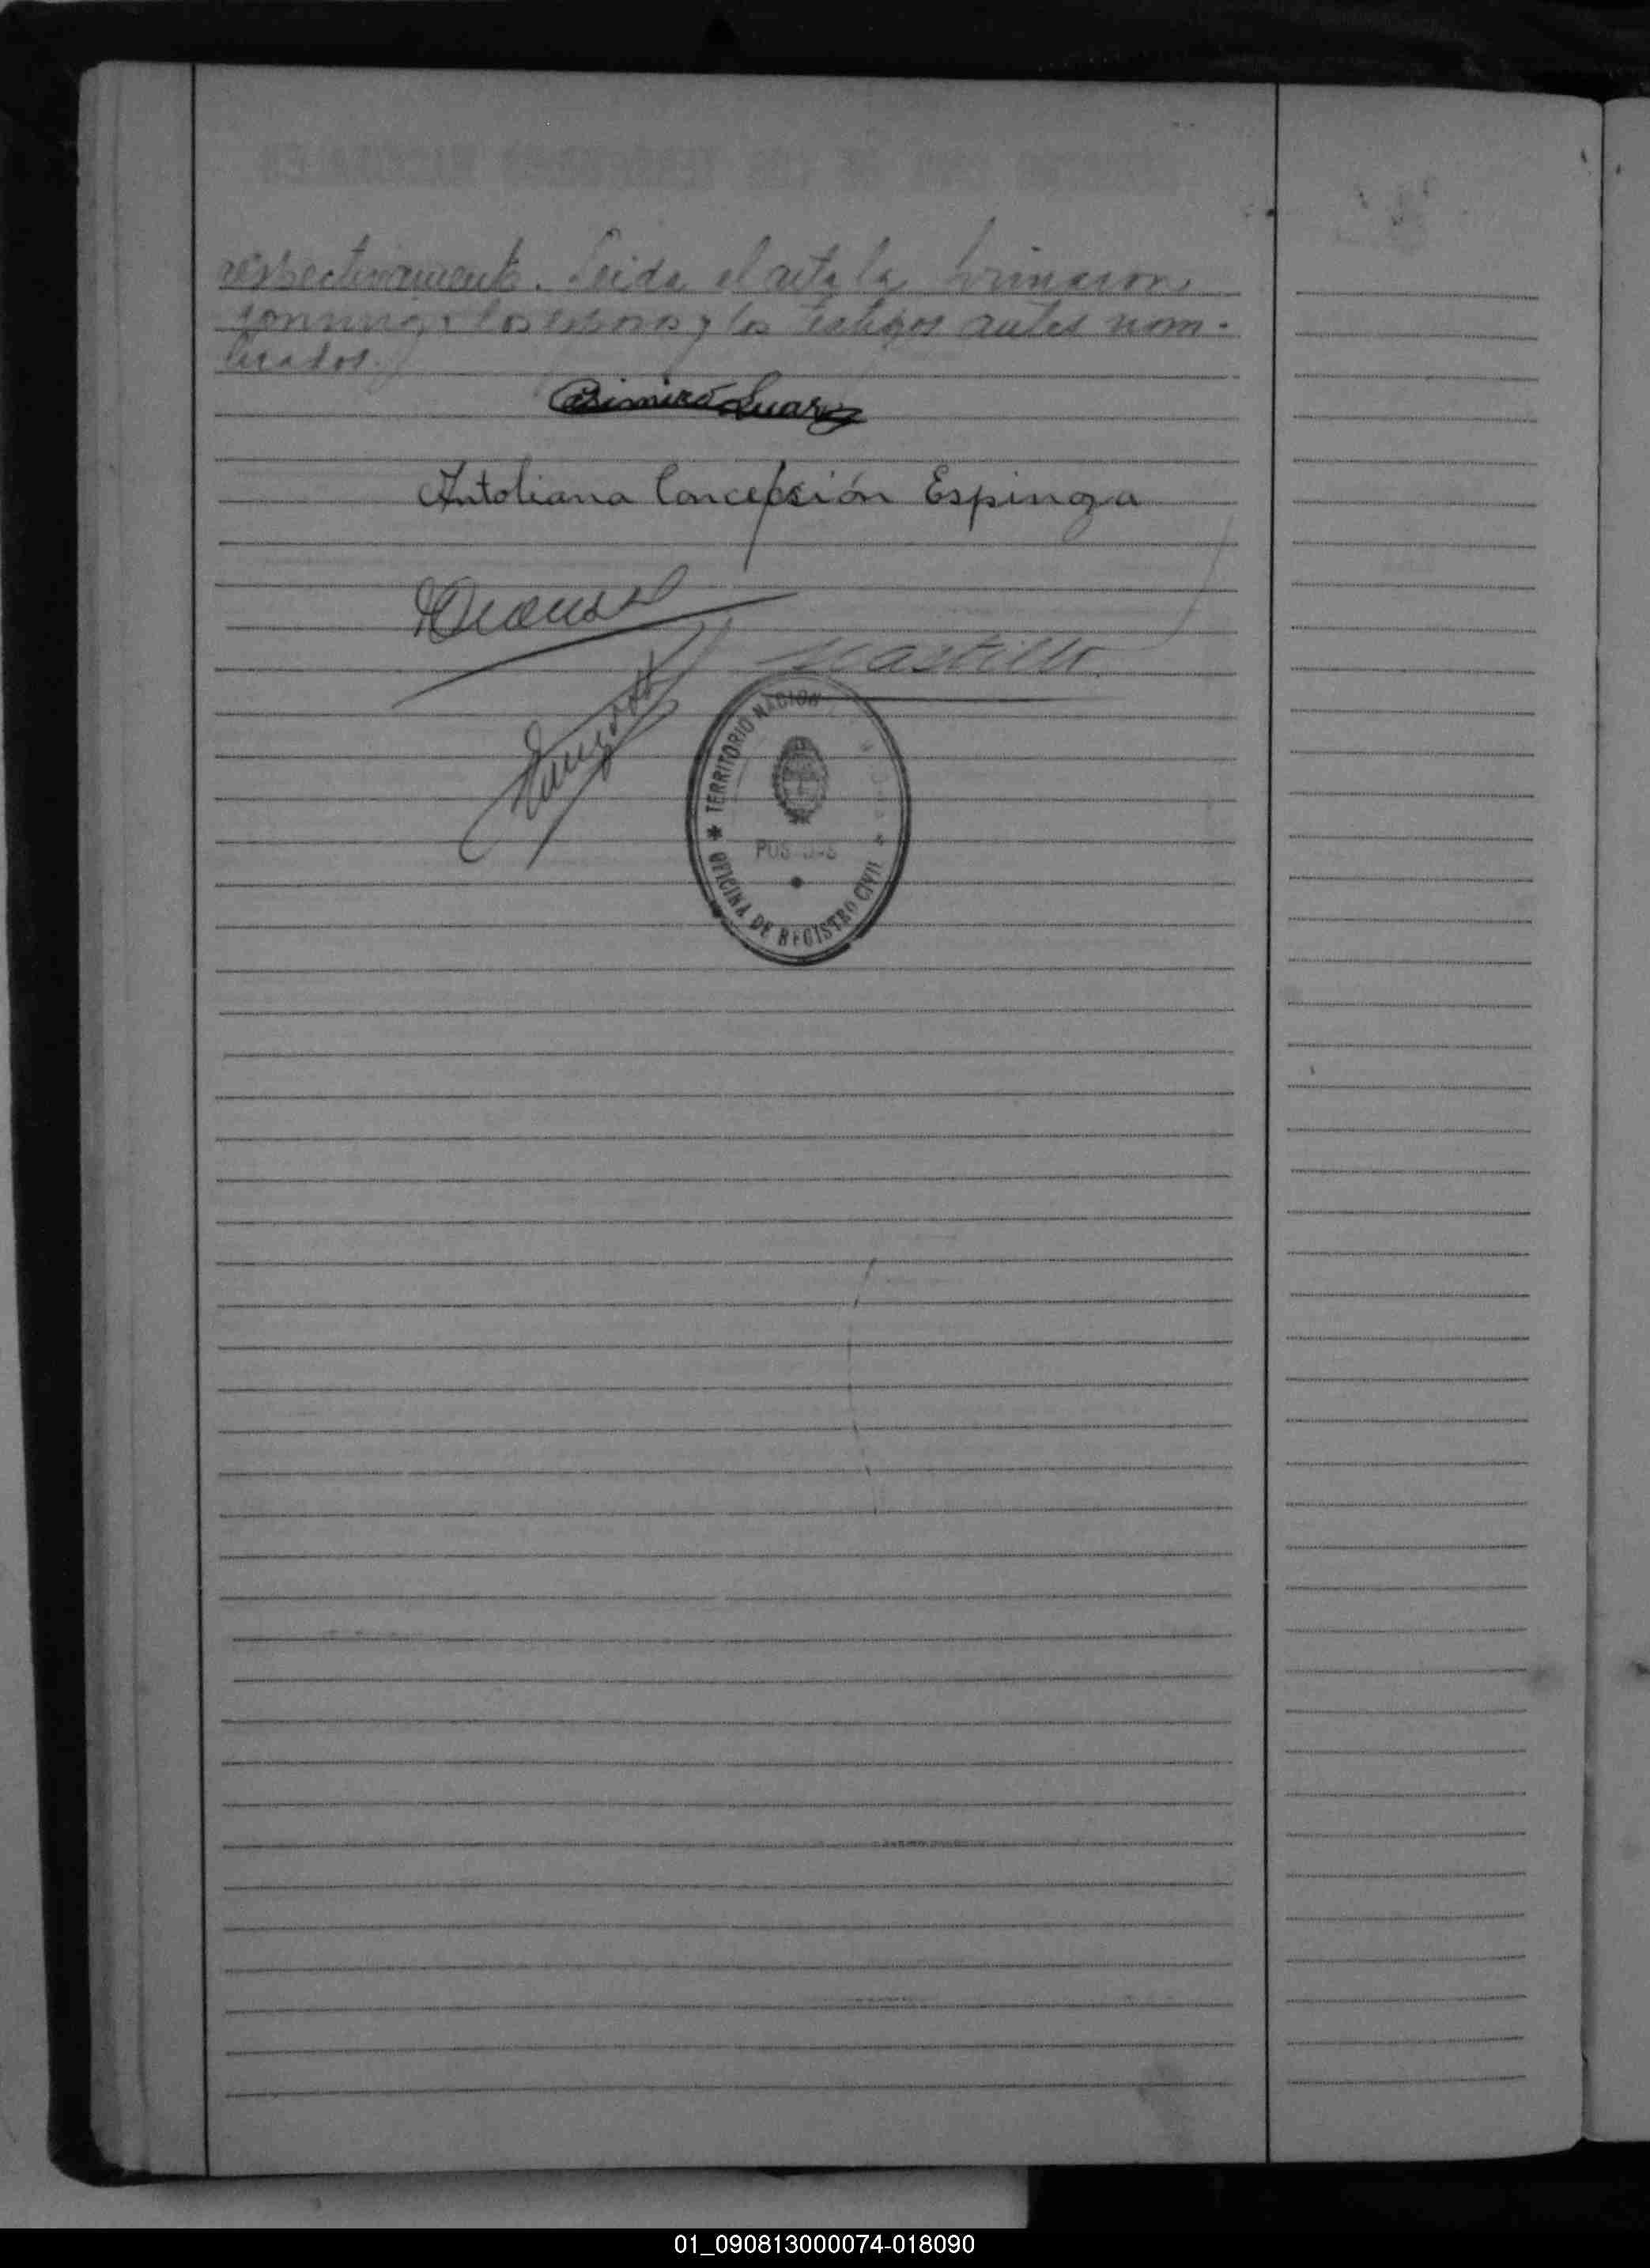 respectivamente. Leida el acta la firmaron
conmigo los esposos y los testigos antes nom-
brados.
Casimiro Suarez
Antoliana Concepsión Espinoza
Castillo
* TERRITORIO NACION
POSADAS
OFICINA DE REGISTRO CIVIL *
01_090813000074-018090